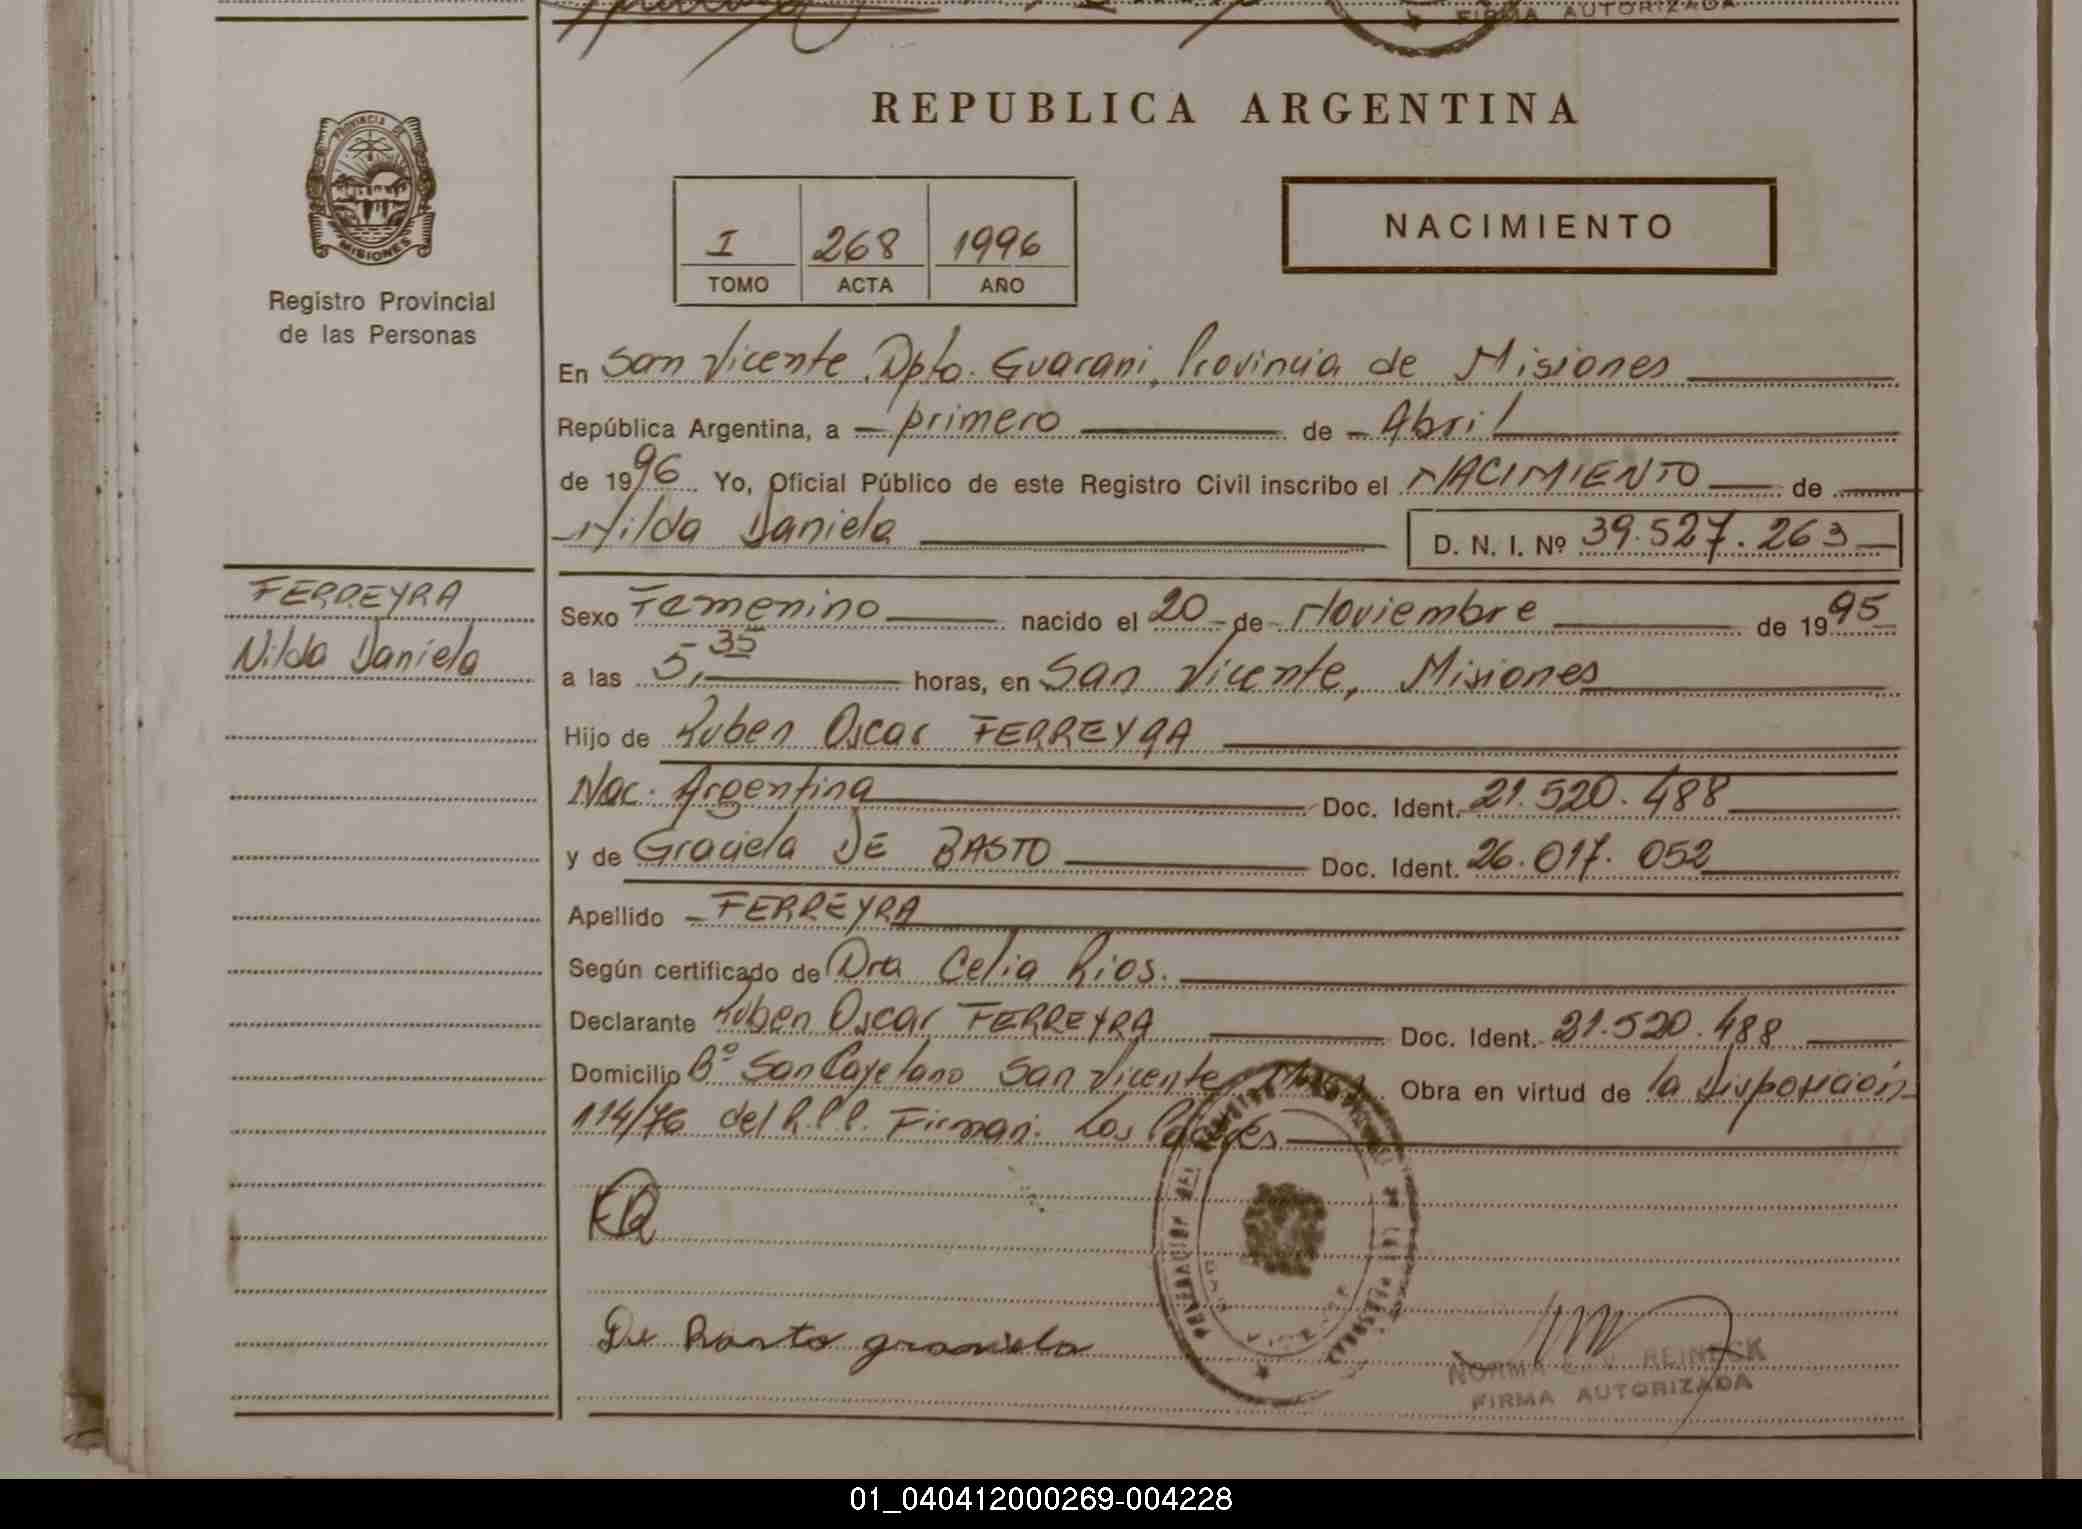 FIRMA AUTORIZADA
REPUBLICA ARGENTINA
PROVINCIA DE
MISIONES
Registro Provincial
de las Personas
I 268 1996
TOMO ACTA AÑO
NACIMIENTO
En San Vicente, Dpto. Guarani, Provincia de Misiones
República Argentina, a primero de Abril
de 1996 Yo, Oficial Público de este Registro Civil inscribo el NACIMIENTO de
Nilda Daniela D. N. I. Nº 39.527.263
FERREYRA
Nilda Daniela
Sexo Femenino nacido el 20 de Noviembre de 1995
a las 5,35 horas, en San Vicente, Misiones
Hijo de Ruben Oscar FERREYRA
Nac. Argentina Doc. Ident. 21.520.488
y de Graciela DE BASTO Doc. Ident. 26.017.052
Apellido FERREYRA
Según certificado de Dra Celia Rios.
Declarante Ruben Oscar FERREYRA Doc. Ident. 21.520.488
Domicilio Bº San Cayetano San Vicente Obra en virtud de la Disposición
114/76 del R.P.P. Firman: Los Padres
De Basto graciela
NORMA REINECK
FIRMA AUTORIZADA
01_040412000269-004228